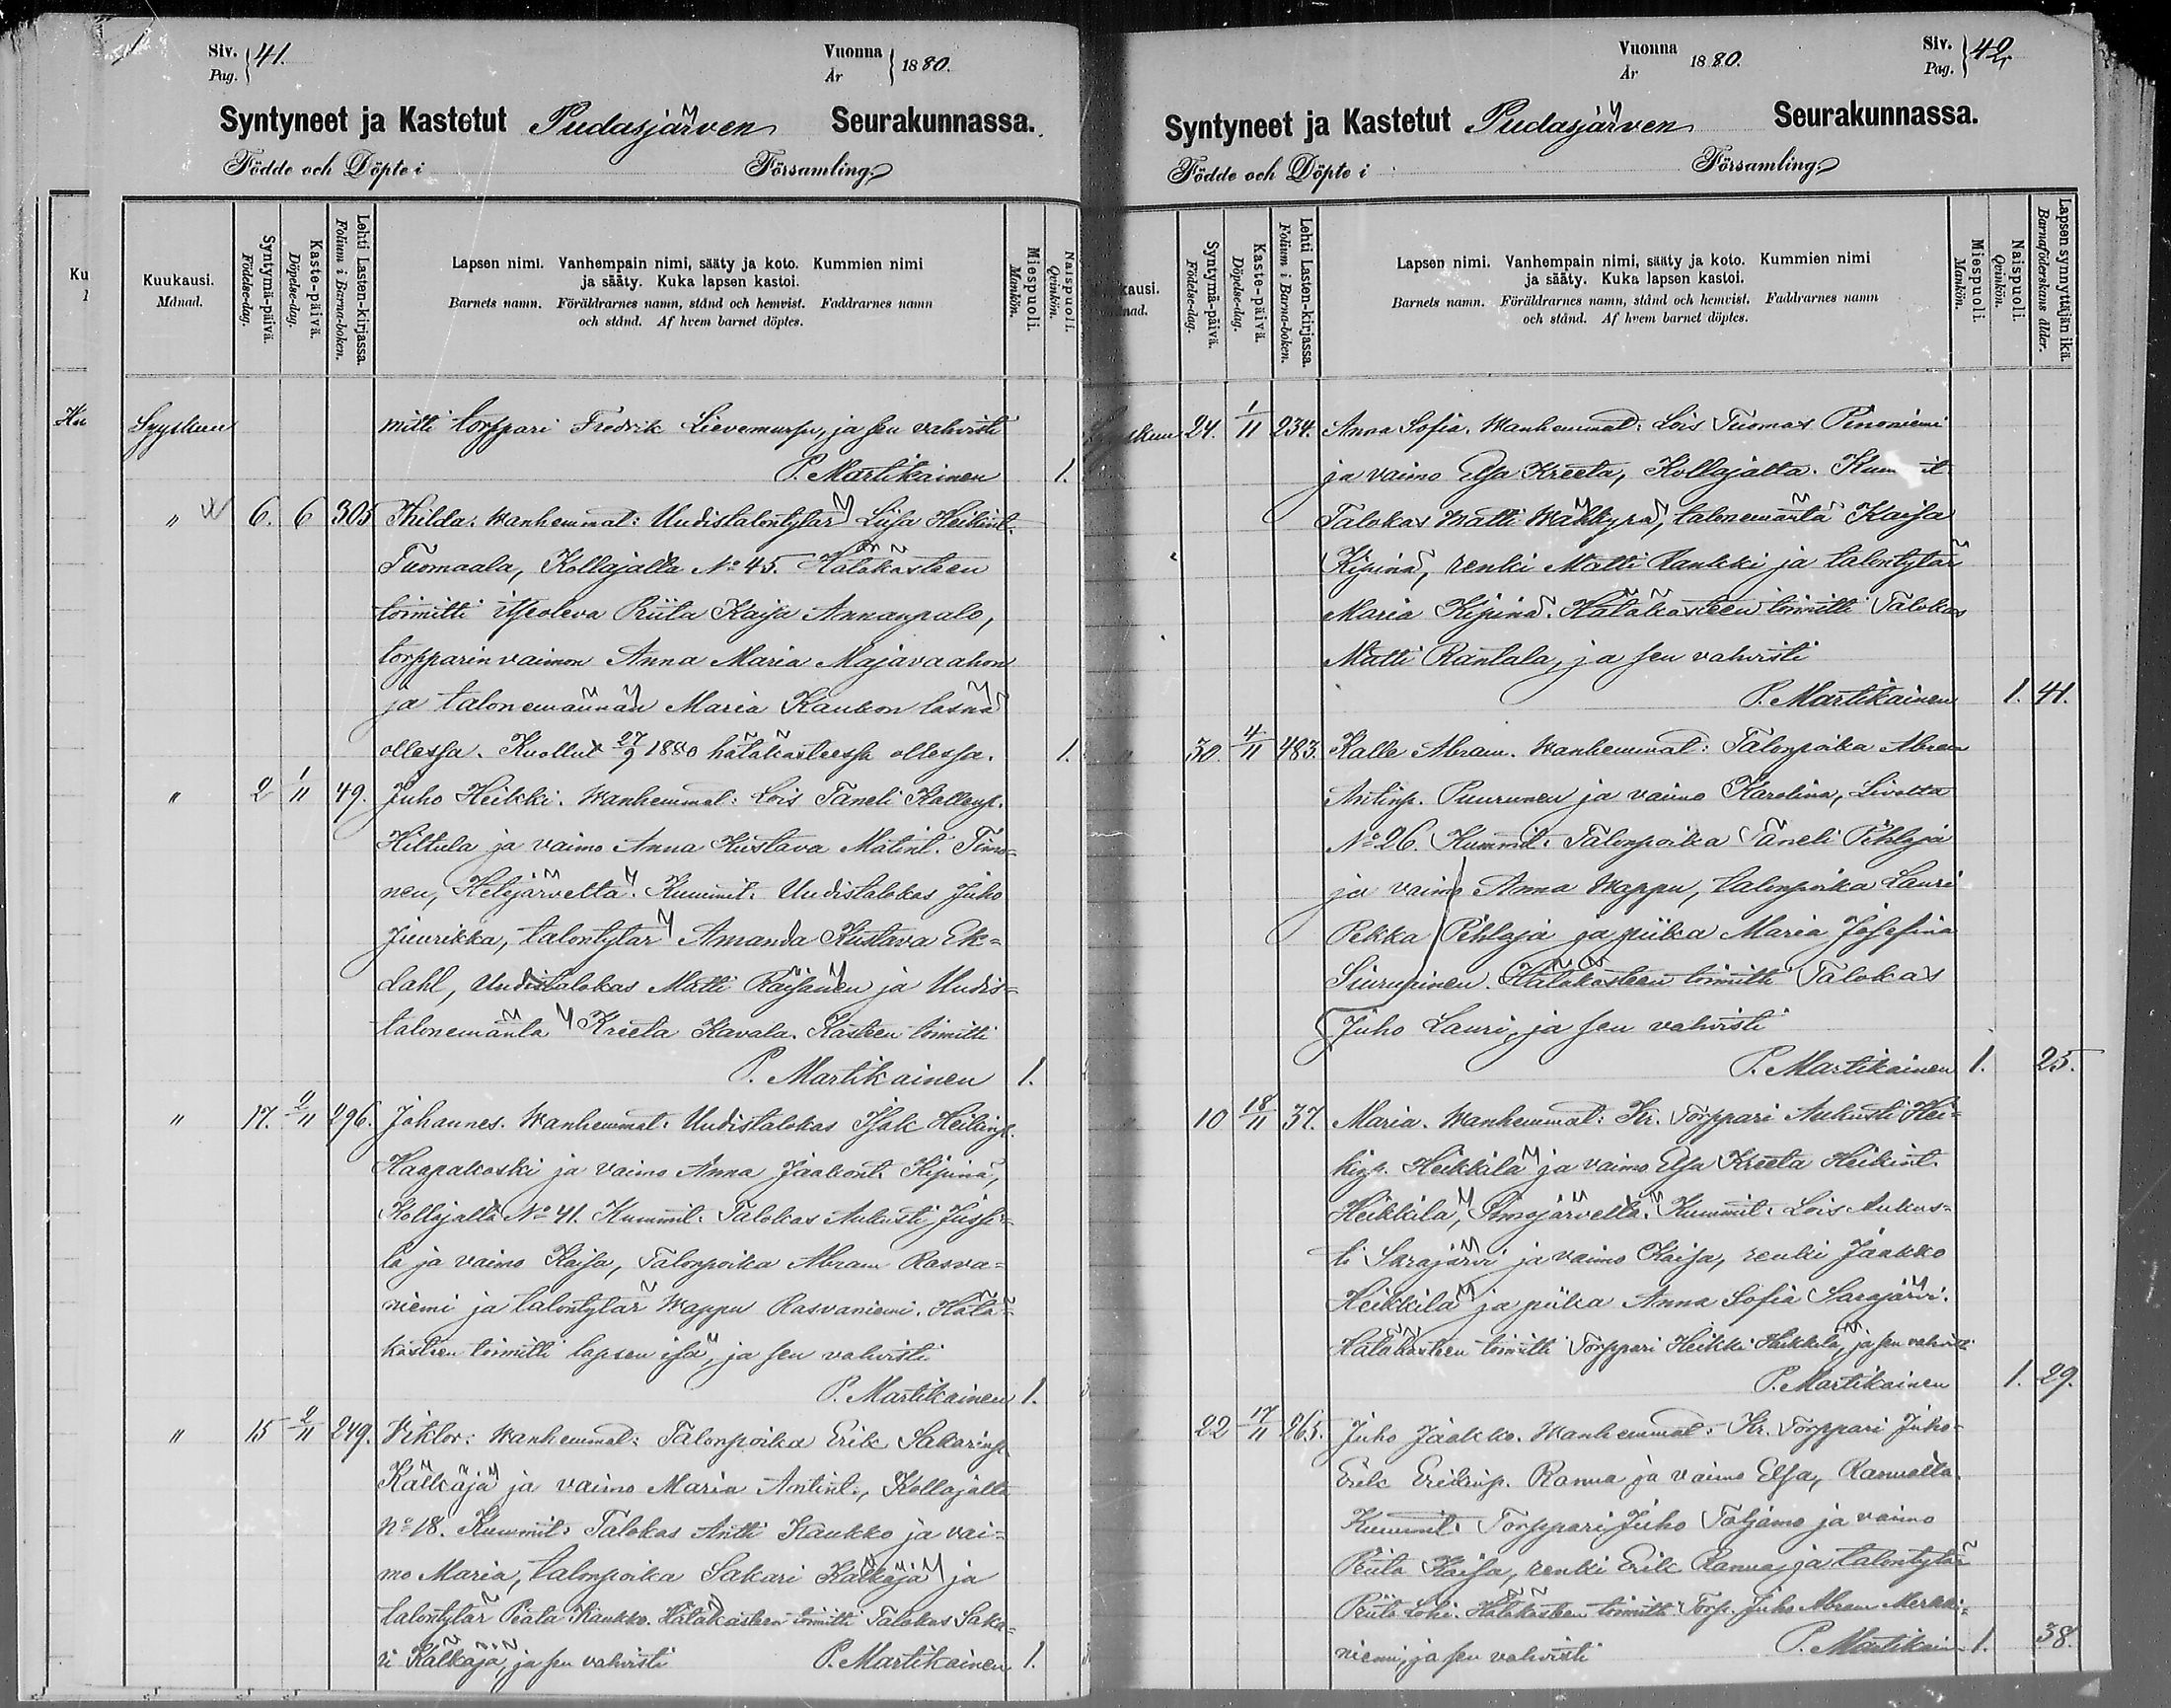 Siv. Pag. 41.
Vuonna År 1880.
Syntyneet ja Kastetut Pudasjärven Seurakunnassa.
Födde och Döpte i Församling.
Kuukausi. Månad.
Syntymä-päivä. Födelse-dag.
Kaste-päivä. Döpelse-dag.
Lehti Lasten-kirjassa. Folium i Barna-boken.
Lapsen nimi. Vanhempain nimi, sääty ja koto. Kummien nimi
ja sääty. Kuka lapsen kastoi.
Barnets namn. Föräldrarnes namn, stånd och hemvist. Faddrarnes namn
och stånd. Af hvem barnet döptes.
Miespuoli. Mankön.
Naispuoli. Qvinkön.
Syyskuu mitti torppari Fredrik Lievemurju, ja sen vahvisti
P. Martikainen 1.
" 6. 6 305 Hilda. Wanhemmat: Uudistalontytär Liisa Heikint.
Tuomaala, Kollajalta No 45. Hätäkasteen
toimitti itseoleva Riita Kaisa Annanpalo,
torpparin vaimon Anna Maria Majavaahon
ja talonemännän Maria Kaukon läsnä
ollessa. Kuollut 27/9 1880 hätäkasteessa ollessa. 1.
" 2 1/11 49. Juho Heikki. Wanhemmat: Lois Taneli Kallenp.
Hiltula ja vaimo Anna Kustava Matint. Timo=
nen, Hetejärveltä. Kummit: Uudistalokas Juho
Juurikka, talontytär Amanda Kustava Ek=
dahl, Uudistalokas Matti Räisänen ja Uudis=
talonemäntä Kreeta Kavala. Kasteen toimitti
P. Martikainen 1.
" 17. 2/11 296. Johannes. Wanhemmat: Uudistalokas Isak Heikinp.
Haapakoski ja vaimo Anna Jaakont. Kipinä,
Kollajalta No 41. Kummit: Talokas Aukusti Jussi=
la ja vaimo Kaisa, Talonpoika Abram Rasva=
niemi ja talontytär Wappu Rasvaniemi. Hätä=
kasteen toimitti lapsen isä, ja sen vahvisti
P. Martikainen 1.
" 15 2/11 249. Viktor: Wanhemmat: Talonpoika Erik Sakarinp.
Kälkäjä ja vaimo Maria Antint., Kollajalta
No 18. Kummit: Talokas Antti Kaukko ja vai=
mo Maria, talonpoika Sakari Kälkäjä ja
talontytär Beata Kaukko. Hätäkasteen toimitti Talokas Saka=
ri Kälkäjä, ja sen vahvisti P. Martikainen 1.
Vuonna År 1880.
Siv. Pag. 42.
Syntyneet ja Kastetut Pudasjärven Seurakunnassa.
Födde och Döpte i Församling.
Syntymä-päivä. Födelse-dag.
Kaste-päivä. Döpelse-dag.
Lehti Lasten-kirjassa. Folium i Barna-boken.
Lapsen nimi. Vanhempain nimi, sääty ja koto. Kummien nimi
ja sääty. Kuka lapsen kastoi.
Barnets namn. Föräldrarnes namn, stånd och hemvist. Faddrarnes namn
och stånd. Af hvem barnet döptes.
Miespuoli. Mankön.
Naispuoli. Qvinkön.
Lapsen synnyttäjän ikä. Barnaföderskans ålder.
24. 1/11 234. Anna Sofia. Wanhemmat: Lois Tuomas Pinoniemi
ja vaimo Elsa Kreeta, Kollajalta. Kummit
Talokas Matti Wäkkyrä, talonemäntä Kaisa
Kipinä, renki Matti Rankki ja talontytär
Maria Kipinä. Hätäkasteen toimitti Talokas
Matti Rantala, ja sen vahvisti
P. Martikainen 1. 41.
30. 4/11 483. Kalle Abram. Wanhemmat: Talonpoika Abram
Antinp. Puurunen ja vaimo Karolina, Livolta
No 26. Kummit: Talonpoika Taneli Pihlaja
ja vaimo Anna Wappu, talonpoika Lauri
Pekka Pihlaja ja piika Maria Josefina
Siurupinen. Hätäkasteen toimitti Talokas
Juho Lauri, ja sen vahvisti
P. Martikainen 1. 25.
10 18/11 37. Maria. Wanhemmat: Kr. Torppari Aukusti Hei=
kinp. Heikkilä ja vaimo Elsa Kreeta Heikint.
Heikkilä, Sarajärveltä. Kummit: Lois Aukus=
ti Sarajärvi ja vaimo Kaisa, renki Jaakko
Heikkilä ja piika Anna Sofia Sarajärvi.
Hätäkasteen toimitti Torppari Heikki Heikkilä, ja sen vahvisti
P. Martikainen 1. 29.
22 17/11 265. Juho Jaakko. Wanhemmat: Kr. Torppari Juho
Erik Erikinp. Ranua ja vaimo Elsa, Ranualta.
Kummit: Torppari Juho Taljamo ja vaimo
Riita Kaisa, renki Erik Ranua, ja talontytär
Riita Lohi. Hätäkasteen toimitti Torp. Juho Abram Merkki=
niemi, ja sen vahvisti P. Martikain 1. 38.